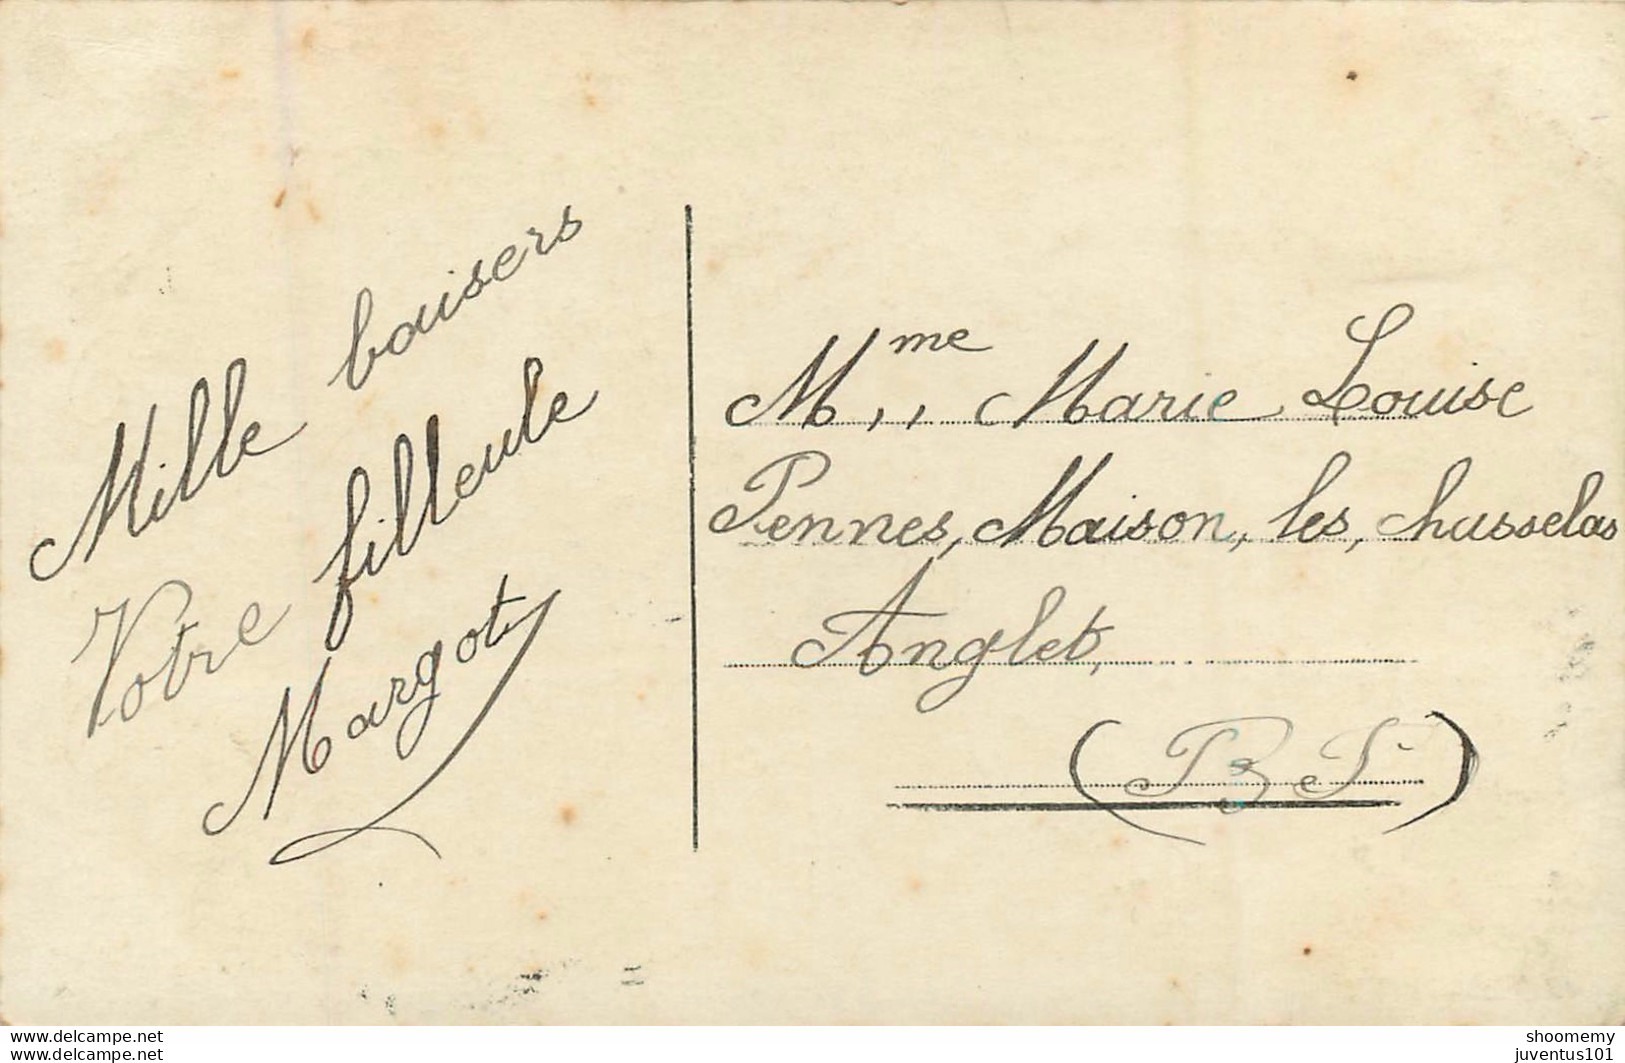 Mille baisers
Votre filleule
Margot
Mme,, Marie Louise
Pennes, Maison, les, chasselas
Anglet,
(B P)
www.delcampe.net
shoomemy
juventus101